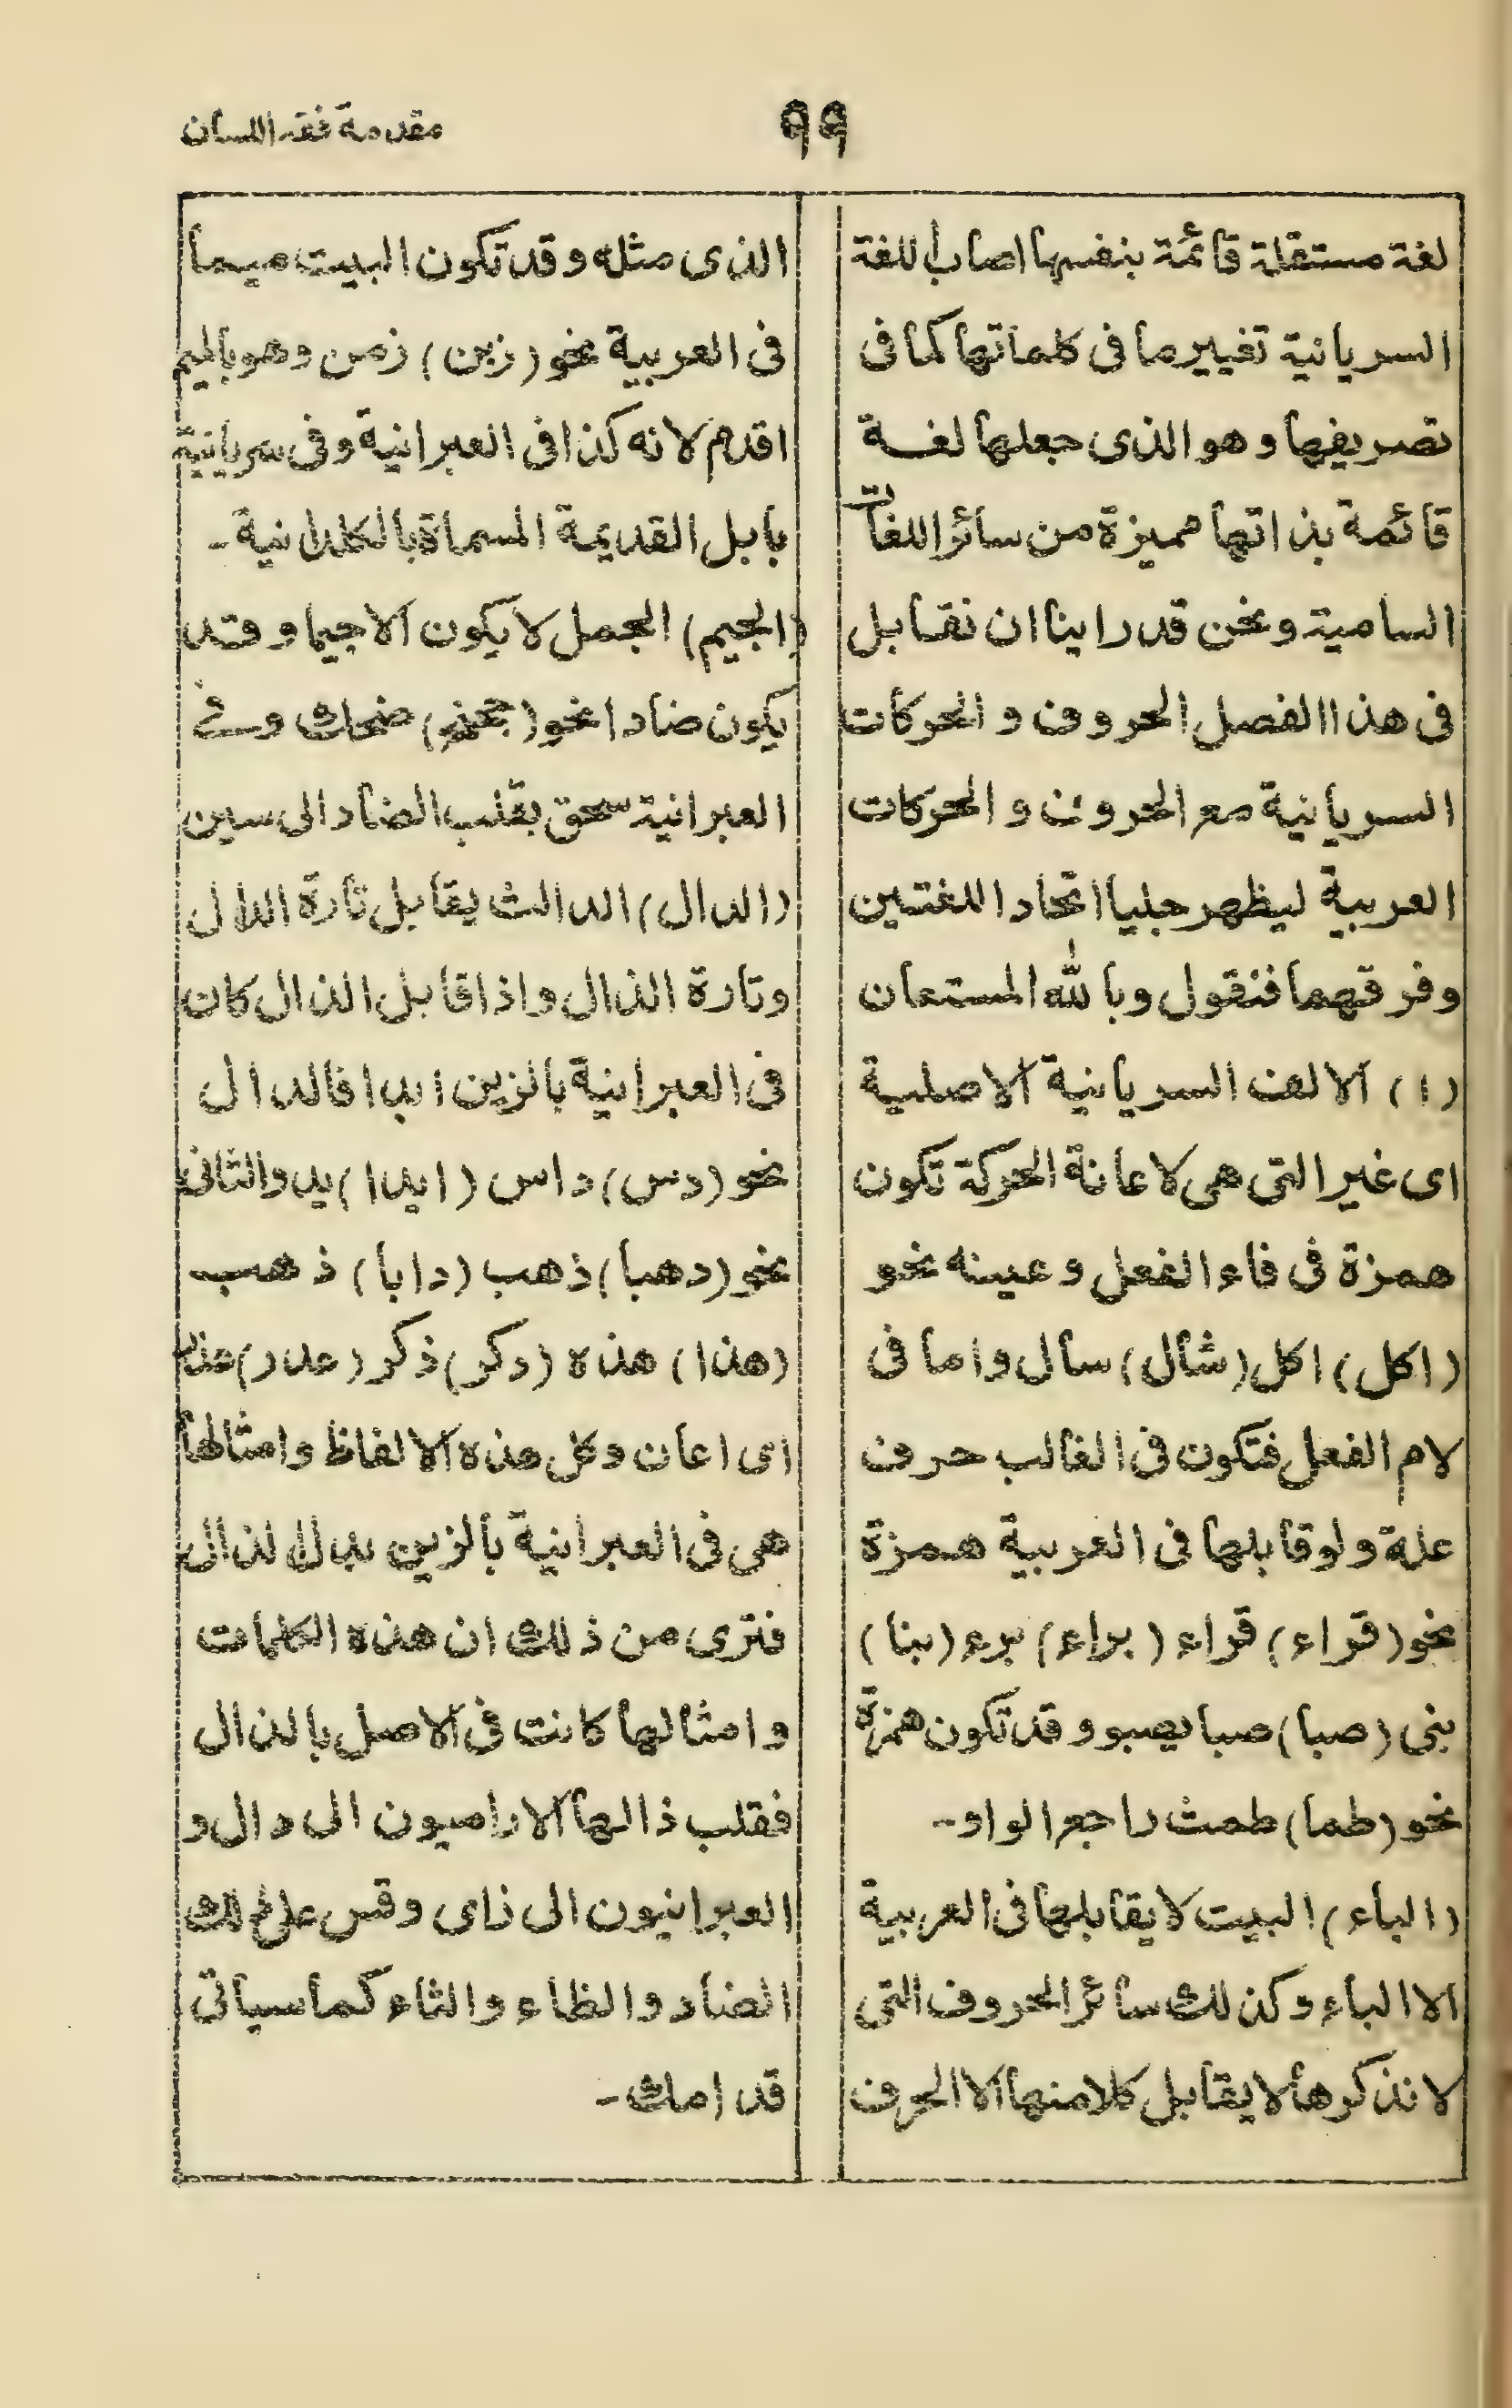 مقدمة فقه اللسان
٩٩
لغة مستقلة قائمة بنفسها اصاب اللغة
السريانية تغيير ما فى كلماتها كما فى
تصريفها وهو الذى جعلها لغة
قائمة بذاتها مميزة من سائر اللغات
السامية ونحن قد راينا ان نقابل
فى هذا الفصل الحروف و الحركات
السريانية مع الحروف و الحركات
العربية ليظهر جليا اتحاد اللغتين
وفرقهما فنقول وبالله المستعان
(ا) الالف السريانية الاصلية
اى غير التى هى لاعانة الحركة تكون
همزة فى فاء الفعل وعينه نحو
(اكل) اكل (شأل) سأل واما فى
لام الفعل فتكون فى الغالب حرف
علة ولو قابلها فى العربية همزة
نحو (قراء) قراء (براء) برء (بنا)
بنى (صبا) صبا يصبو وقد تكون همزة
نحو (طما) طمث راجع الواو-
(الباء) البيت لا يقابلها فى العربية
الا الباء وكذلك سائر الحروف التى
لا نذكرها لا يقابل كلا منها الا الحرف
الذى مثله وقد تكون البيت ميما
فى العربية نحو (زبن) زمن وهو بالميم
اقدم لانه كذا فى العبرانية وفى سريانية
بابل القديمة المسماة بالكلدانية-
(الجيم) الجمل لا يكون الا جيما وقد
يكون ضادا نحو ضحك وفى
العبرانية سحق بقلب الضاد الى سين
(الدال) الدالث يقابل تارة الدال
وتارة الذال واذا قابل الذال كان
فى العبرانية بالزين ابدا فالدال
نحو (دس) داس (ايدا) يد والثانى
نحو (دهبا) ذهب (دابا) ذهب
(هذا) هذه (دكر) ذكر (عدر) عذر
اى اعان وكل هذه الالفاظ وامثالها
هى فى العبرانية بالزين بدل الذال
فترى من ذلك ان هذه الكلمات
وامثالها كانت فى الاصل بالذال
فقلب ذالها الاراميون الى دال و
العبرانيون الى زاى وقس على ذلك
الضاد والظاء والثاء كما سيأتى
قدامك-